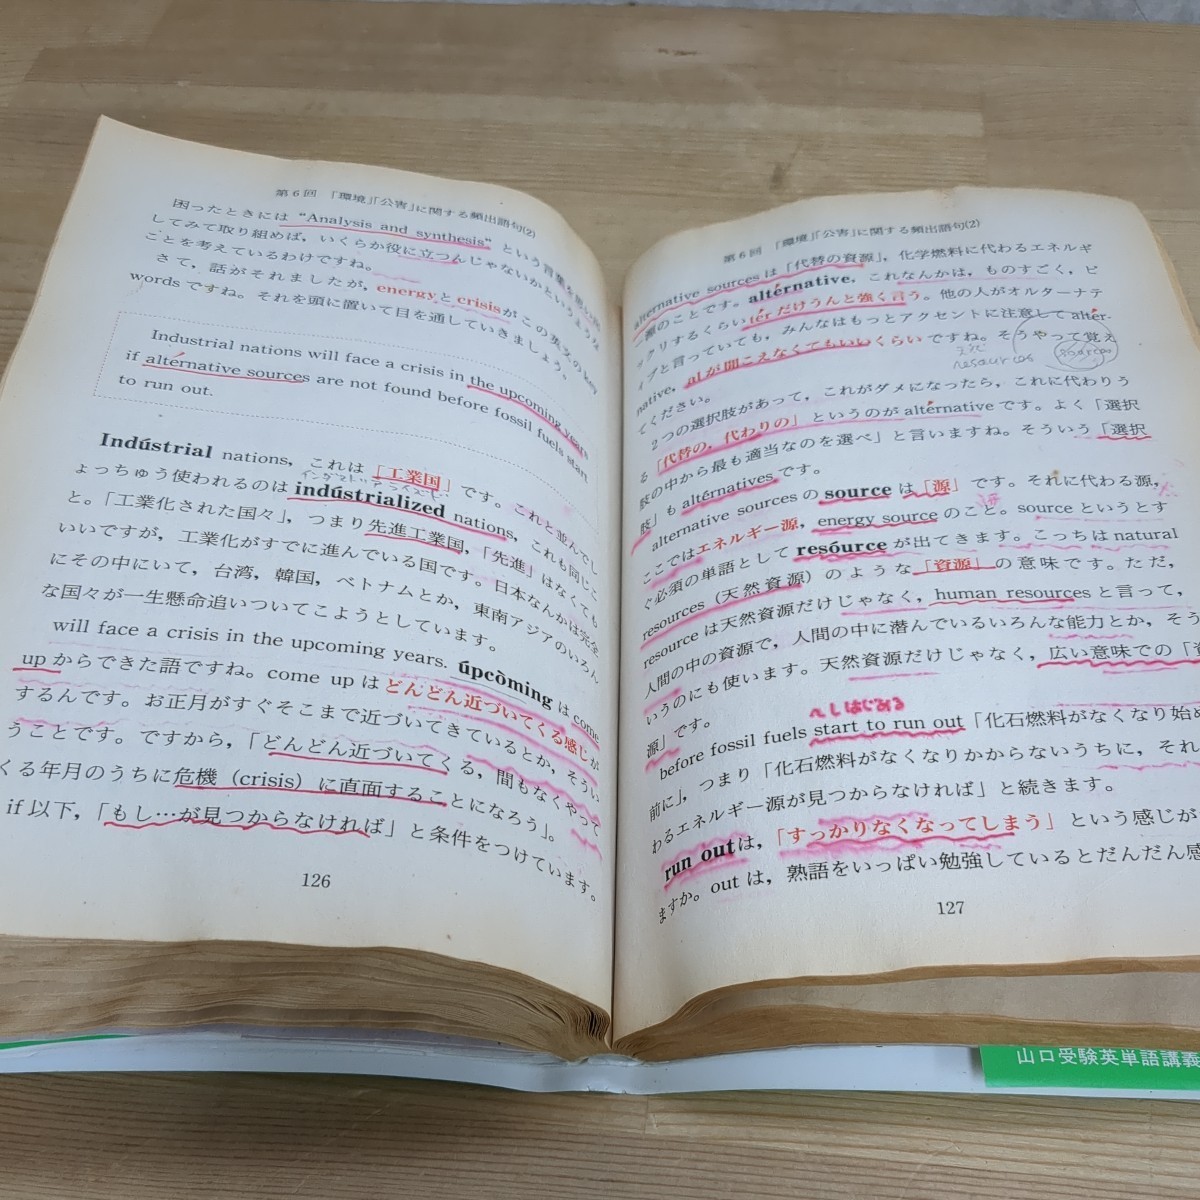 第6回 「環境」「公害」に関する頻出語句(2)
困ったときには “Analysis and synthesis” という言葉を思い出
してみて取り組めば，いくらか役に立つんじゃないかというような
ことを考えているわけですね。
さて，話がそれましたが，energyとcrisisがこの英文のkey
wordsですね。それを頭に置いて目を通していきましょう。
Industrial nations will face a crisis in the upcoming years
if altérnative sources are not found before fossil fuels start
to run out.
Indústrial nations，これは「工業国」です。これと並んでし
ょっちゅう使われるのは indústrialized nations，これも同じこ
と。「工業化された国々」，つまり先進工業国，「先進」はなくても
いいですが，工業化がすでに進んでいる国です。日本なんかは完全
にその中にいて，台湾，韓国，ベトナムとか，東南アジアのいろん
な国々が一生懸命追いついてこようとしています。
will face a crisis in the upcoming years. úpcòming は come
up からできた語ですね。come up はどんどん近づいてくる感じが
するんです。お正月がすぐそこまで近づいてきているとか，そうい
うことです。ですから，「どんどん近づいてくる，間もなくやって
くる年月のうちに危機（crisis）に直面することになろう」。
if 以下，「もし…が見つからなければ」と条件をつけています。
126
第6回 「環境」「公害」に関する頻出語句(2)
alternative sources は「代替の資源」，化学燃料に代わるエネルギ
ー源のことです。altérnative，これなんかは，ものすごく，ビ
ックリするくらい tér だけうんと強く言う。他の人がオルターナテ
ィブと言っていても，みんなはもっとアクセントに注意して altér-
native，al が聞こえなくてもいいくらいですね。そうやって覚え
てください。
resources
source
2つの選択肢があって，これがダメになったら，これに代わりう
る「代替の，代わりの」というのが altérnative です。よく「選択
肢の中から最も適当なのを選べ」と言いますね。そういう「選択
肢」も altérnatives です。
alternative sources の source は「源」です。それに代わる源，
ここではエネルギー源，energy source のこと。source というとす
ぐ必須の単語として resóurce が出てきます。こっちは natural
resources（天然資源）のような「資源」の意味です。ただ，
resource は天然資源だけじゃなく，human resources と言って，
人間の中の資源で，人間の中に潜んでいるいろんな能力とか，そう
いうのにも使います。天然資源だけじゃなく，広い意味での「資
源」です。
へしはじめる
before fossil fuels start to run out「化石燃料がなくなり始め
前に」，つまり「化石燃料がなくなりかからないうちに，それ
わるエネルギー源が見つからなければ」と続きます。
run out は，「すっかりなくなってしまう」という感じが
ますか。out は，熟語をいっぱい勉強しているとだんだん感
127
山口受験英単語講義